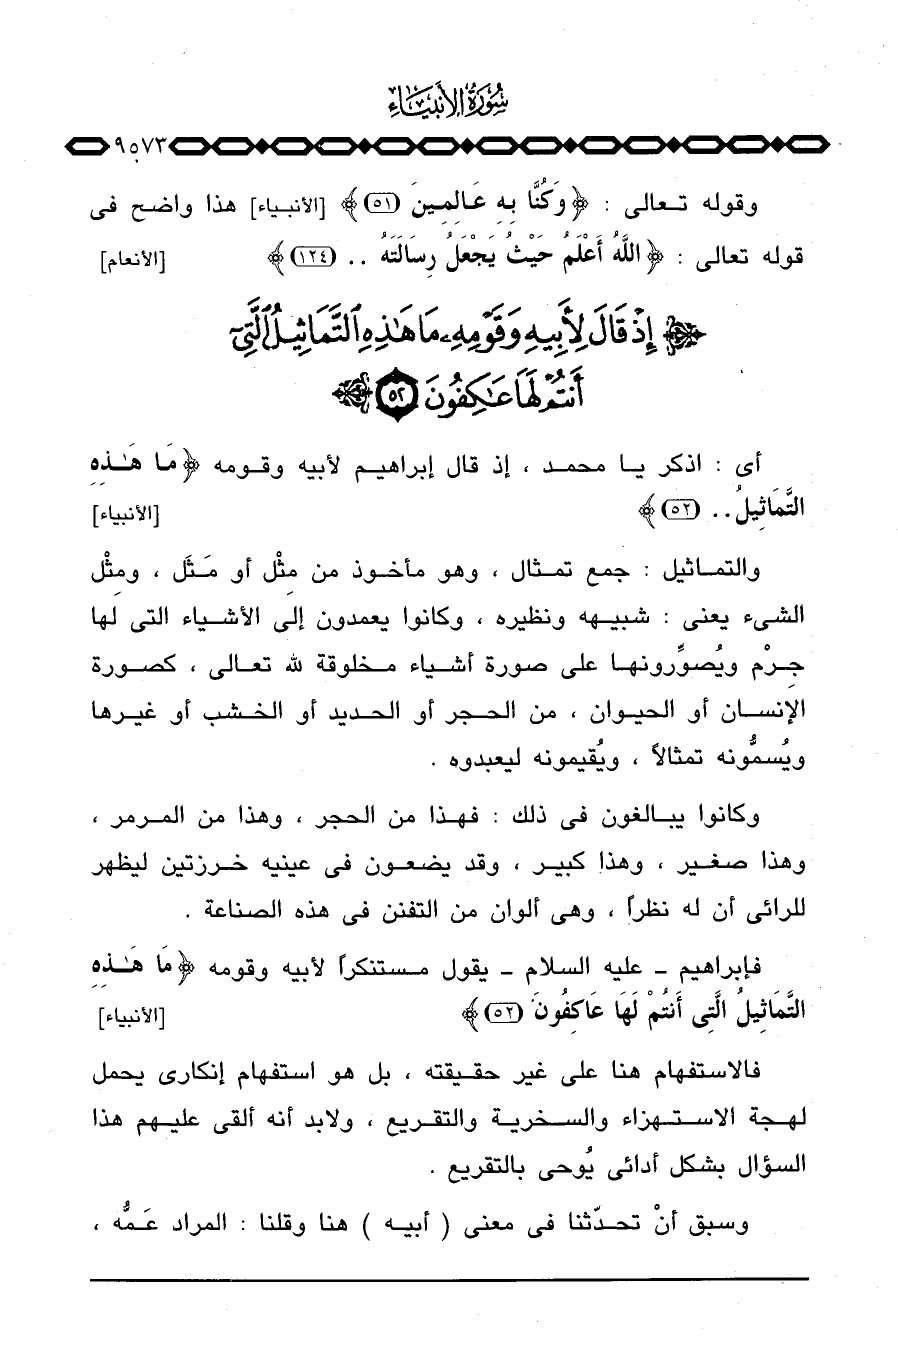 سُورَةُ الأَنْبِيَاءِ
٩٥٧٣
وقوله تعالى : ﴿وَكُنَّا بِهِ عَالِمِينَ (٥١)﴾ [الأنبياء] هذا واضح فى
قوله تعالى : ﴿اللَّهُ أَعْلَمُ حَيْثُ يَجْعَلُ رِسَالَتَهُ .. (١٢٤)﴾ [الأنعام]
﴿إِذْ قَالَ لِأَبِيهِ وَقَوْمِهِۦ مَا هَٰذِهِ ٱلتَّمَاثِيلُ ٱلَّتِىٓ
أَنتُمْ لَهَا عَٰكِفُونَ ٥٢﴾
أى : اذكر يا محمد ، إذ قال إبراهيم لأبيه وقومه ﴿مَا هَٰذِهِ
التَّمَاثِيلُ .. (٥٢)﴾ [الأنبياء]
والتماثيل : جمع تمثال ، وهو مأخوذ من مِثْل أو مَثَل ، ومِثْل
الشىء يعنى : شبيهه ونظيره ، وكانوا يعمدون إلى الأشياء التى لها
جِرْم ويُصوِّرونها على صورة أشياء مخلوقة لله تعالى ، كصورة
الإنسان أو الحيوان ، من الحجر أو الحديد أو الخشب أو غيرها
ويُسمُّونه تمثالاً ، ويُقيمونه ليعبدوه .
وكانوا يبالغون فى ذلك : فهذا من الحجر ، وهذا من المرمر ،
وهذا صغير ، وهذا كبير ، وقد يضعون فى عينيه خرزتين ليظهر
للرائى أن له نظراً ، وهى ألوان من التفنن فى هذه الصناعة .
فإبراهيم - عليه السلام - يقول مستنكراً لأبيه وقومه ﴿مَا هَٰذِهِ
التَّمَاثِيلُ الَّتِى أَنتُمْ لَهَا عَاكِفُونَ (٥٢)﴾ [الأنبياء]
فالاستفهام هنا على غير حقيقته ، بل هو استفهام إنكارى يحمل
لهجة الاستهزاء والسخرية والتقريع ، ولابد أنه ألقى عليهم هذا
السؤال بشكل أدائى يُوحى بالتقريع .
وسبق أنْ تحدّثنا فى معنى ( أبيه ) هنا وقلنا : المراد عَمُّه ،